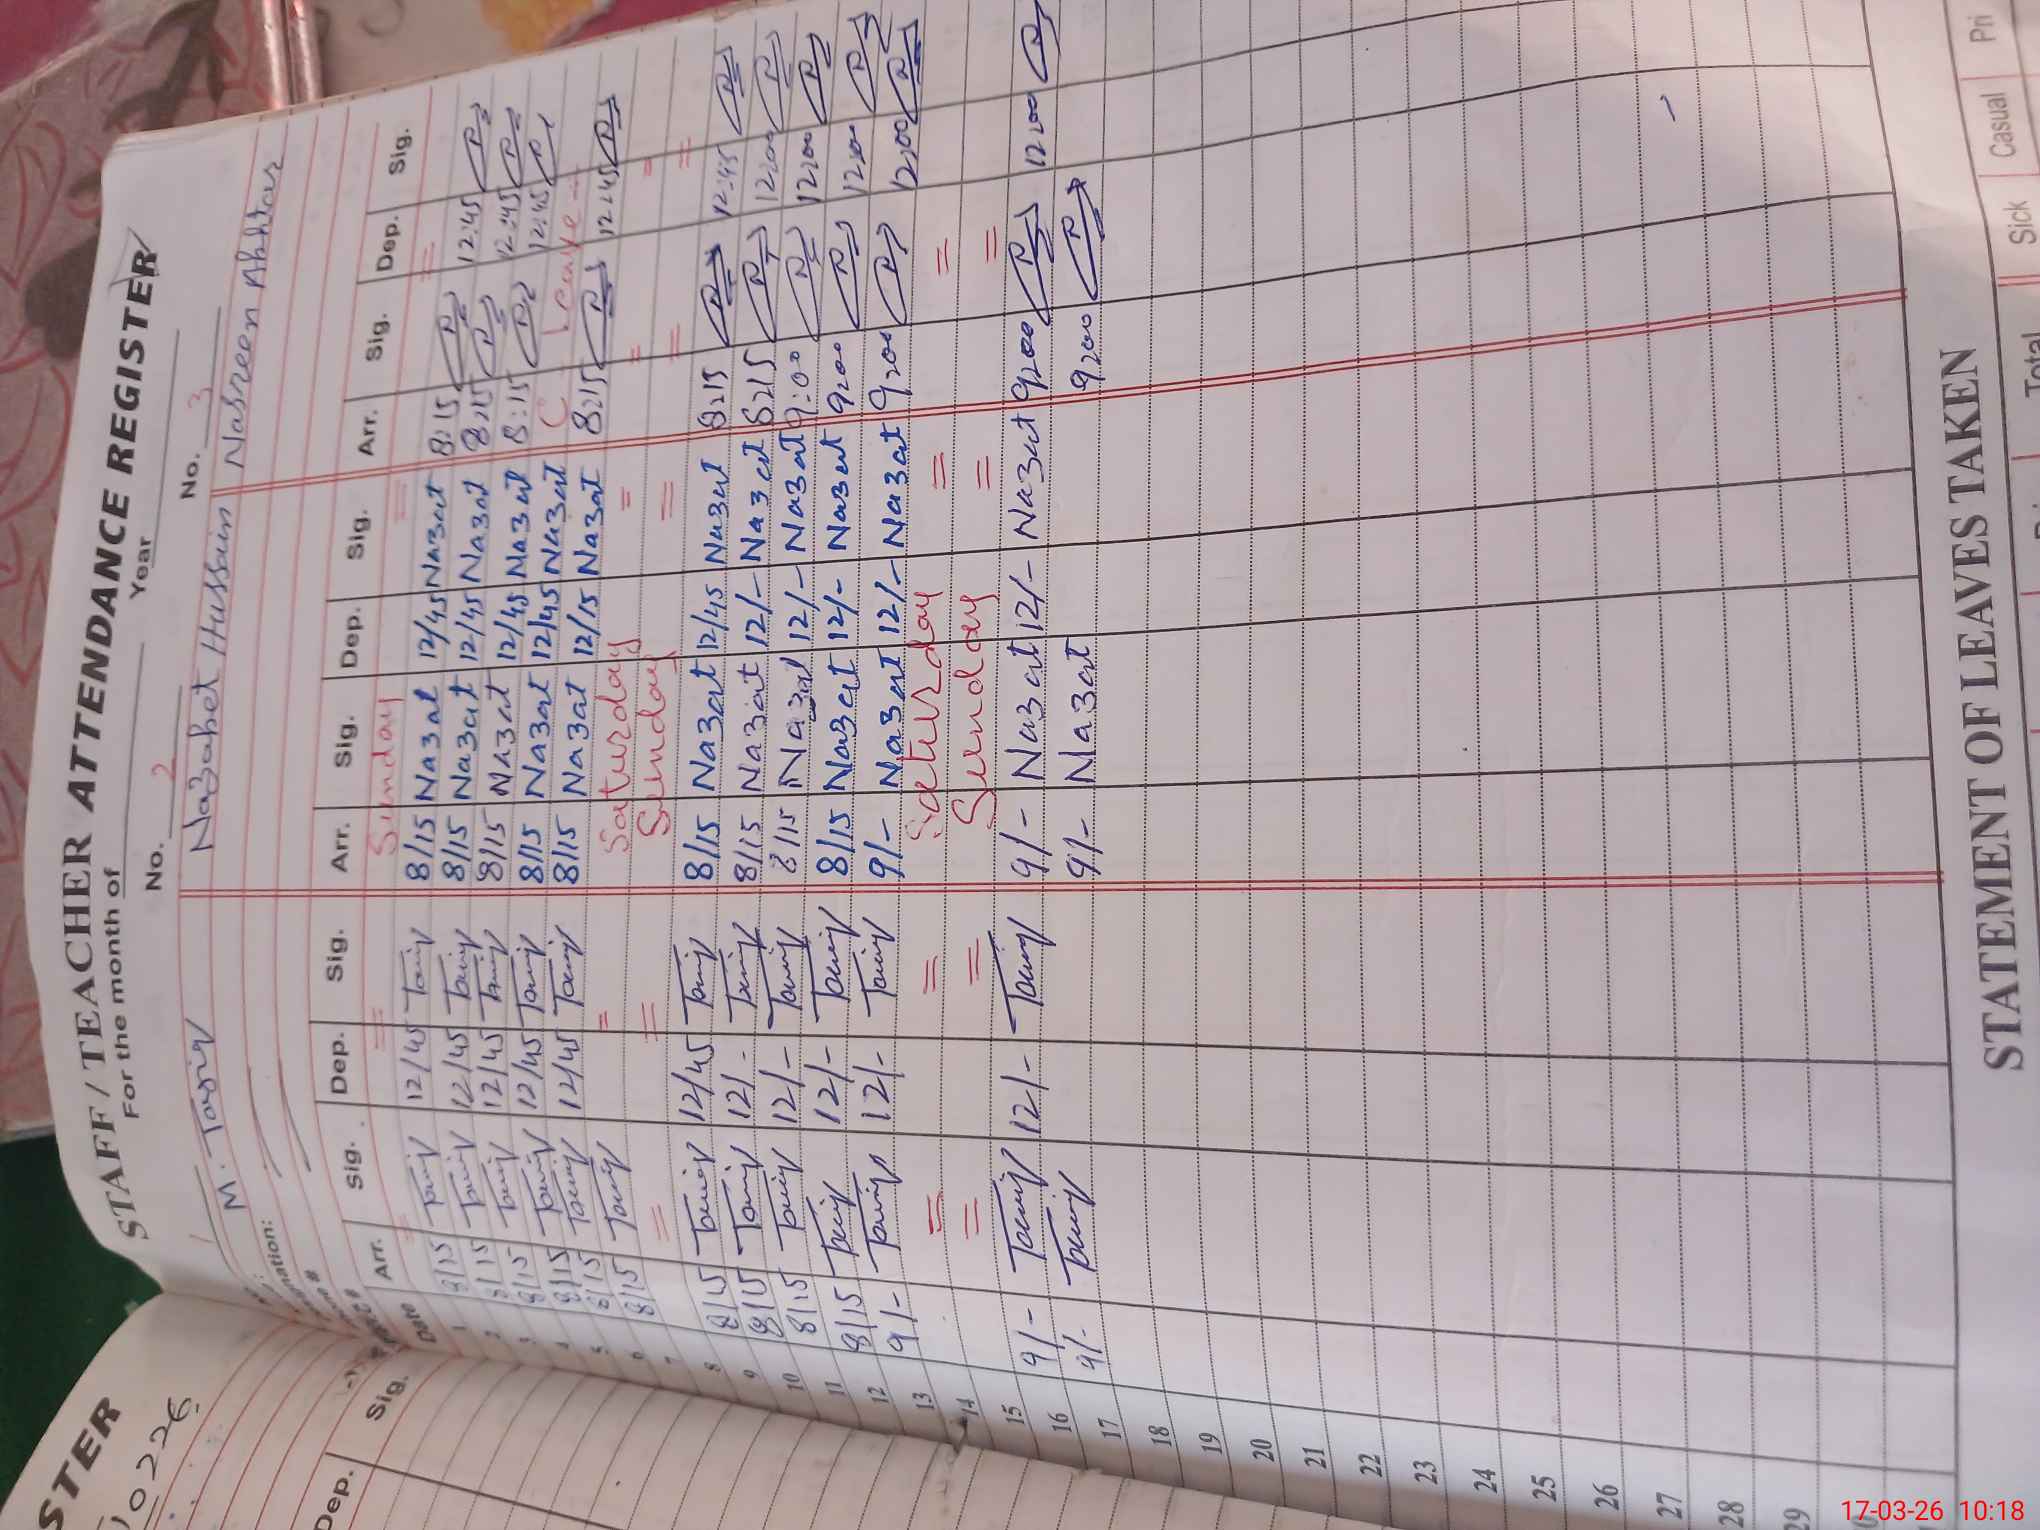 STER
10226
Dep. Sig.
STAFF / TEACHER ATTENDANCE REGISTER
For the month of Year
No. 2 No. 3
M. Tariq Nazahet Hussain Nasreen Akhtar
Date Arr. Sig. Dep. Sig. Arr. Sig. Dep. Sig. Arr. Sig. Dep. Sig.
= = Sunday = =
8/15 Tariq 12/45 Tariq 8/15 Nazat 12/45 Nazat 8:15 12:45
8/15 Tariq 12/45 Tariq 8/15 Nazat 12/45 Nazat 8:15 12:45
8/15 Tariq 12/45 Tariq 8/15 Nazat 12/45 Nazat 8:15 12:45
8/15 Tariq 12/45 Tariq 8/15 Nazat 12/45 Nazat C Leave
8/15 Tariq 12/45 Tariq 8/15 Nazat 12/15 Nazat 8:15 12:45
8/15 Tariq = Saturday = = =
= = Sunday = = =
8/15 Tariq 12/45 Tariq 8/15 Nazat 12/45 Nazat 8:15 12:45
8/15 Tariq 12/- Tariq 8/15 Nazat 12/- Nazat 8:15 12:00
8/15 Tariq 12/- Tariq 8/15 Nazat 12/- Nazat 9:00 12:00
8/15 Tariq 12/- Tariq 8/15 Nazat 12/- Nazat 9:00 12:00
9/- Tariq 12/- Tariq 9/- Nazat 12/- Nazat 9:00 12:00
= = Saturday = =
= = Sunday = =
9/- Tariq 12/- Tariq 9/- Nazat 12/- Nazat 9:00 12:00
9/- Tariq 9/- Nazat 9:00
1
2
3
4
5
6
7
8
9
10
11
12
13
14
15
16
17
18
19
20
21
22
23
24
25
26
27
28
29
STATEMENT OF LEAVES TAKEN
Total Sick Casual Pri
17-03-26 10:18